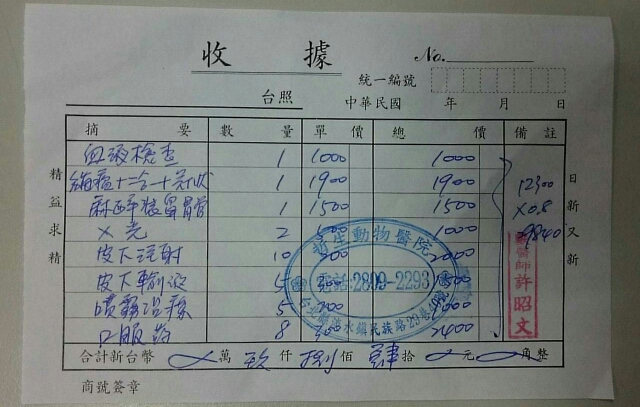 收 據
No.
統一編號
台照
中華民國 年 月 日
摘 要 數 量 單 價 總 價 備 註
血液檢查 1 1000 1000
1 1900 1900 12300
1 1500 1500 X0.8
X光 2 500 1000 9840
皮下注射 10 2000
皮下輸液 5
噴霧治療 5
口服藥 8 300 2400
精益求精
日新又新
哲生動物醫院
電話:2809-2293
淡水鎮民族路29
獸醫師許昭文
合計新台幣 萬 玖 仟 捌 佰 肆 拾 元 角整
商號簽章